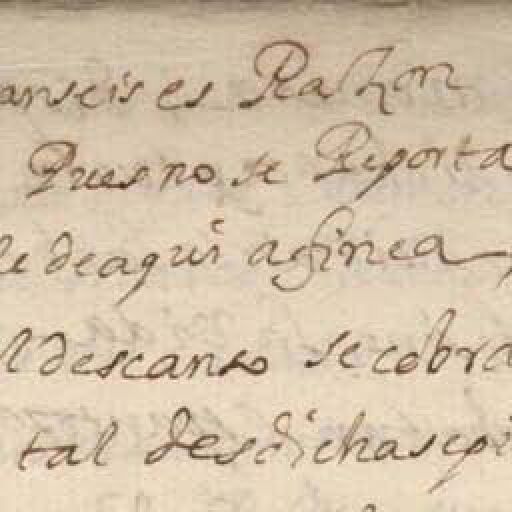 anseis es Razon
Pues no se Reporta
le de aqui a finea
l descanso se cobra
tal desdicha sepi